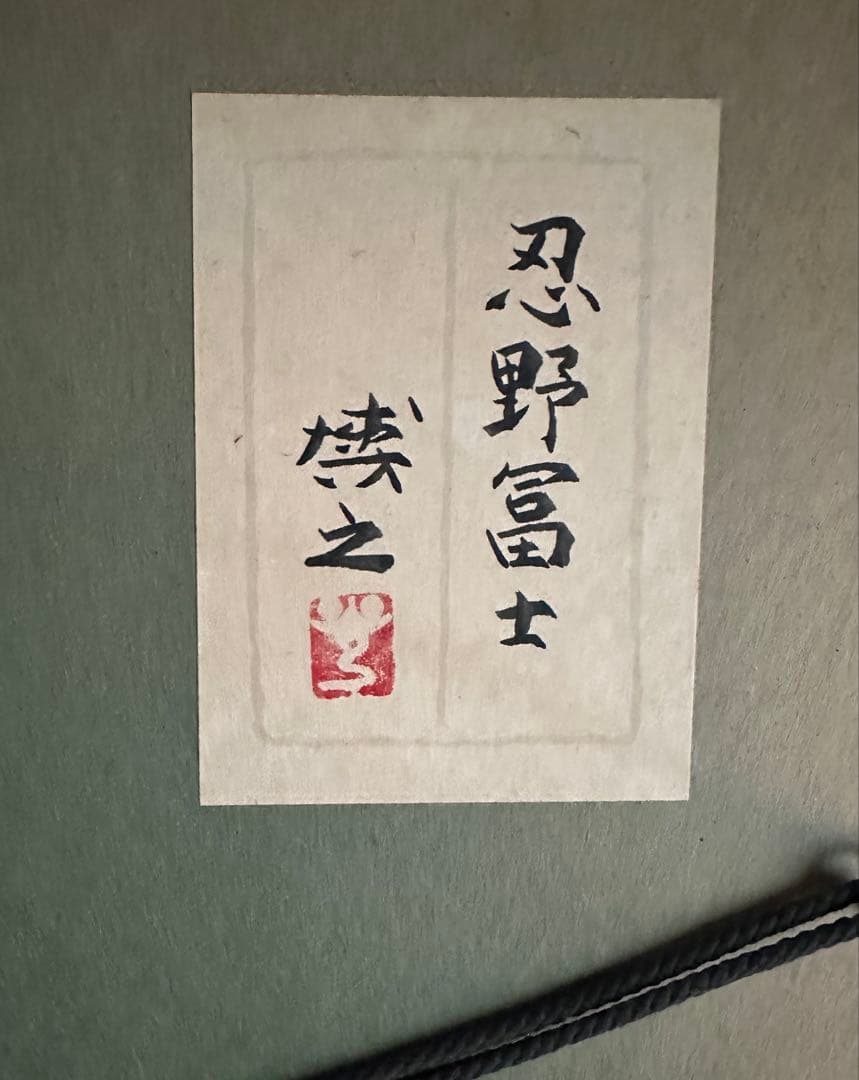 忍野冨士
之